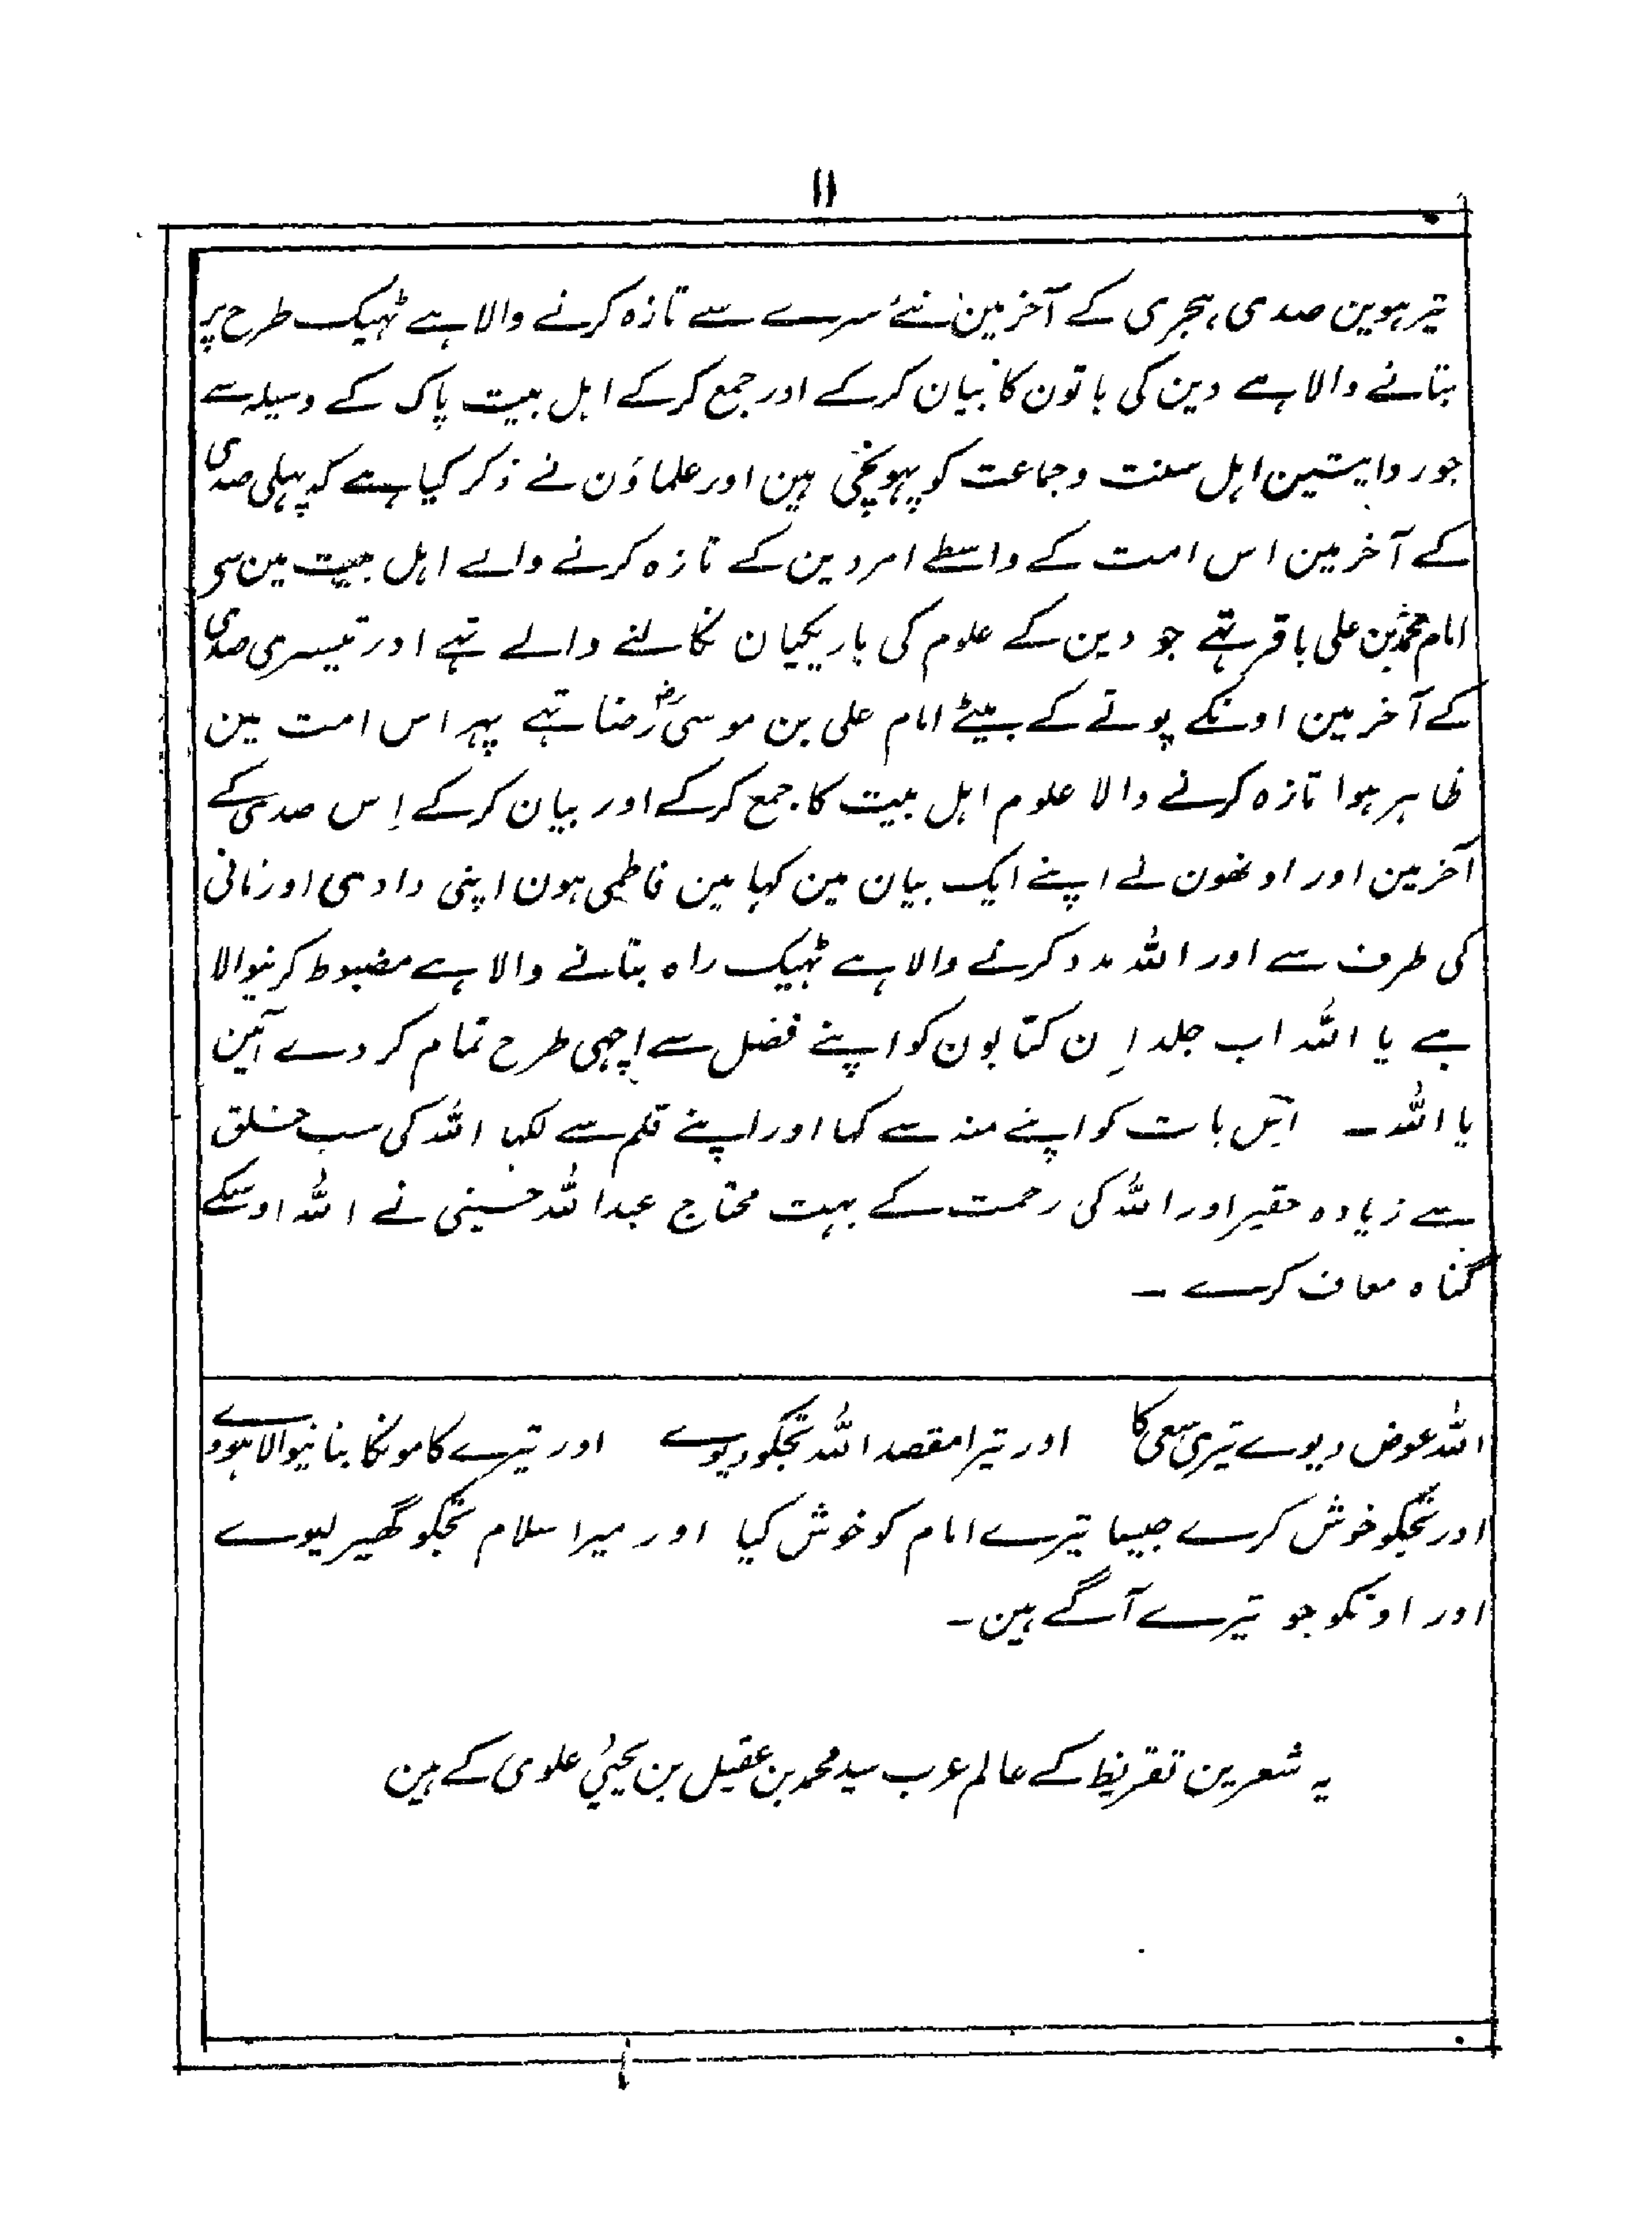 ۱۱
تیرہوین صدی ہجری کے آخر مین نئے سرے سے تازہ کرنے والا ہے ٹہیک طرح پر
بتانے والا ہے دین کی باتون کا بیان کرکے اور جمع کرکے اہل بیت پاک کے وسیلہ سے
جو روایتین اہل سنت وجماعت کو پہونچی ہین اور علماؤن نے ذکر کیا ہے کہ پہلی صدی
کے آخر مین اس امت کے واسطے امر دین کے تازہ کرنے والے اہل بیت مین سی
امام محمد بن علی باقر تہے جو دین کے علوم کی باریکیان نکالنے والے تہے اور تیسری صدی
کے آخر مین اونکے پوتے کے بیٹے امام علی بن موسی رضا تہے پہر اس امت مین
ظاہر ہوا تازہ کرنے والا علوم اہل بیت کا جمع کرکے اور بیان کرکے اِس صدی کے
آخر مین اور اونھون نے اپنے ایک بیان مین کہا مین فاطمی ہون اپنی دادی اور نانی
کی طرف سے اور اللہ مدد کرنے والا ہے ٹہیک راہ بتانے والا ہے مضبوط کرنیوالا
ہے یا اللہ اب جلد اِن کتابون کو اپنے فضل سے اچہی طرح تمام کر دے آمین
یا اللہ ۔ اس بات کو اپنے منہ سے کہا اور اپنے قلم سے لکہا اللہ کی سب خلق
سے زیادہ حقیر اور اللہ کی رحمت کے بہت محتاج عبداللہ حسینی نے اللہ اوسکے
گناہ معاف کرے ۔
اللہ عوض دیوے تیری سعی کا اور تیرا مقصد اللہ تجکو دیوے اور تیرے کامونکا بنانیوالا ہووے
اور تجکو خوش کرے جیسا تیرے امام کو خوش کیا اور میرا سلام تجکو گھیر لیوے
اور اونکو جو تیرے آگے ہین ۔
یہ شعرین تقریظ کے عالم عرب سید محمد بن عقیل بن یحییٰ علوی کے ہین